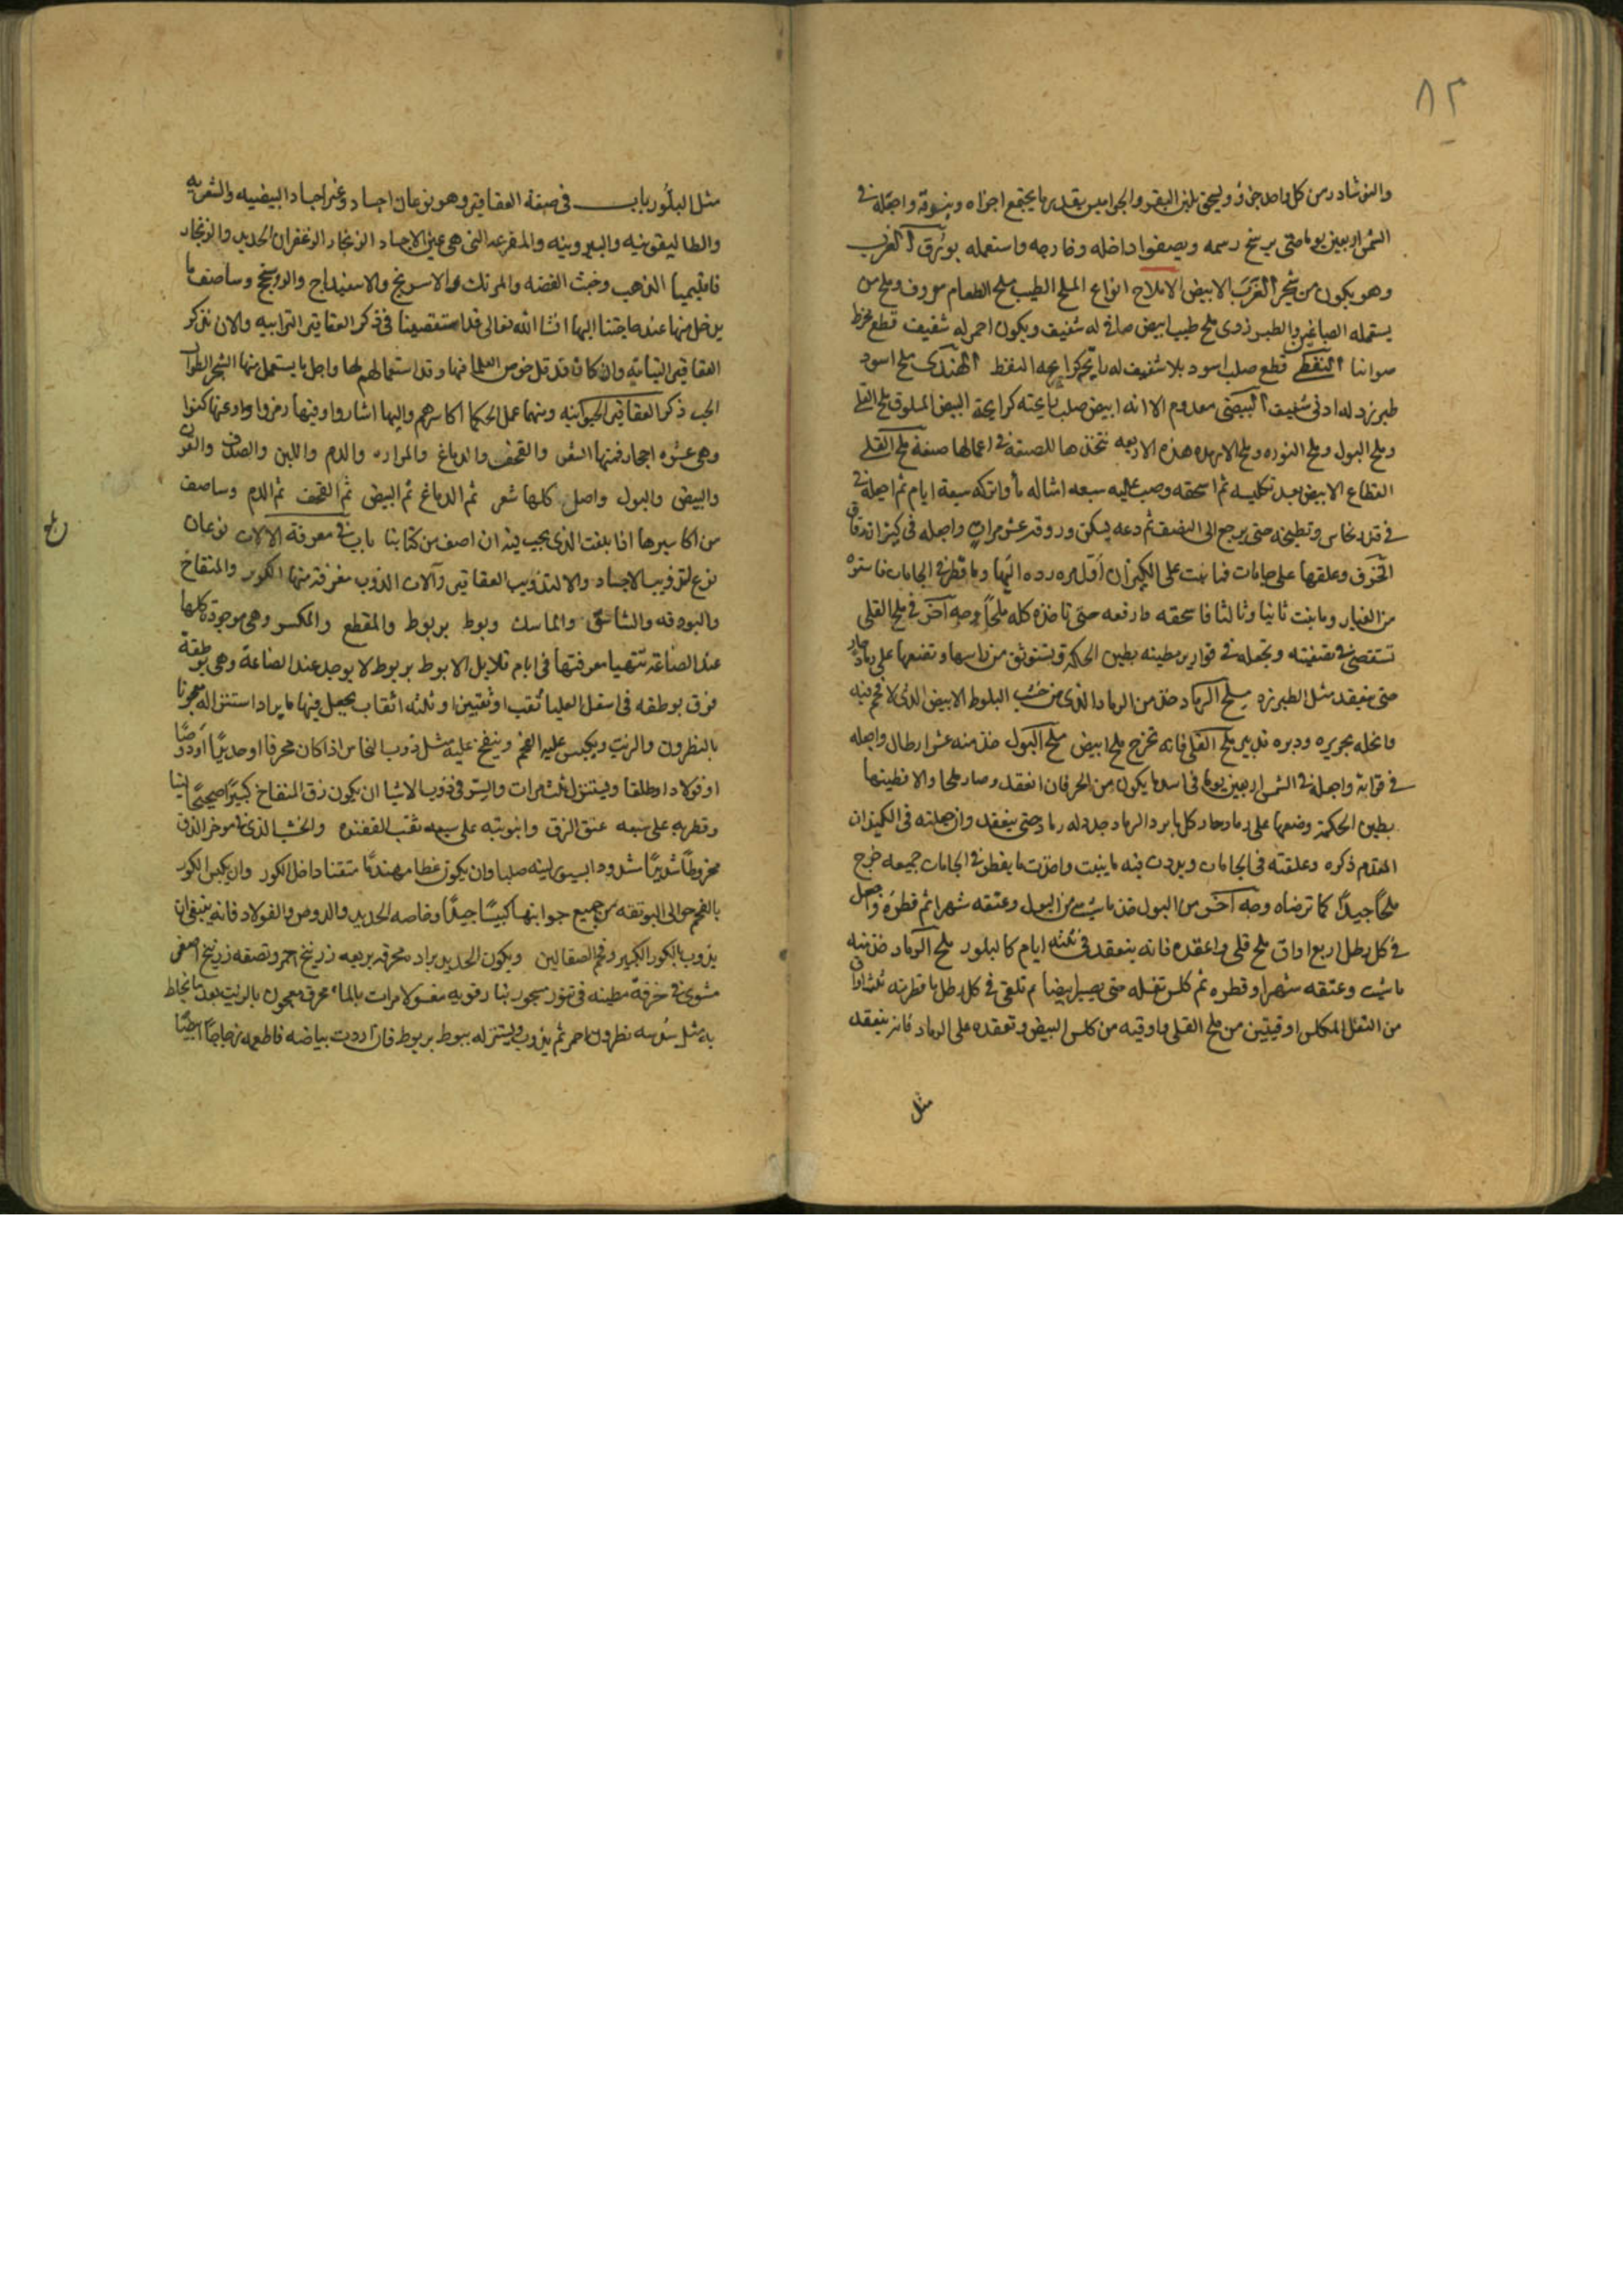 ٨٢
والنوشادر من كل واحد جزؤ ويعجن بلبن البقر والجواميس بقدر ما يجتمع اجزاه وبندقه واجعله في
الشمس اربعين يوما حتى يرسخ رسمه ويصفوا داخله وخارجه واستعمله بورق الغرب
وهو يكون من شجر الغرب الابيض الاملاح انواع الملح الطيب ملح الطعام معروف وملح من
يستعمله الصباغين والطبرزدى ملح طيب ابيض صافى له شفيف ويكون احمر له شفيف قطع مخرط
النفطى قطع صلب اسود بلا شفيف له رائحة كرايحه النفط الهندى ملح اسود
طبرزد له ادنى شفيف البيضى معدوم الا انه ابيض صلب رايحته كرايحة البيض المسلوق ملح القلى
وملح البول وملح النوره وملح هذه الاربعه نتخذها للصنعة في اعمالها صنعة ملح القلى
القطاع الابيض بعد تكليسه ثم اسحقه وصب عليه سبعه امثاله مأ واتركه سبعة ايام ثم اجعله في
في قدر نحاس وتطبخه حتى يرجع الى النصف ثم دعه يسكن وروقه عشر مرات واجعله في كيزان دقاق
الخزف وعلقها على جامات فما نبت على الكيزان اول مره رده اليها وما قطر في الجامات فاستره
من الغبار وما نبت ثانيا وثالثا فاسحقه وارفعه حتى تاخذه كله ملحاً وجه آخر في ملح القلى
تستقصى في تصفيته وتجعله في قوارير مطينه بطين الحكمة وتستوثق من راسها وتضعها على رماد حار
حتى ينعقد مثل الطبرزد ملح الرماد خذ من الرماد الذى من خشب البلوط الابيض الذى لا فحم فيه
وانخله بحريره ودبره تدبير ملح القلى فانه تخرج ملح ابيض ملح البول خذ منه عشر ارطال واجعله
في قرابة واجعله في الشمس اربعين يوما في اسد ما يكون من الحر فان انعقد وصار ملحا والا فطينها
بطين الحكمة وضعها على رماد حار كل ما برد الرماد جدد له رماد حتى ينعقد وان جعلته في الكيزان
المقدم ذكره وعلقته في الجامات وبردت فيه ما ينبت واخذت ما يقطر في الجامات جميعه خرج
ملحاً جيداً كما ترضاه وجه آخر من البول خذ ما شيت من البول وعتقه شهرا ثم قطره واجعل
في كل رطل اربع اواق ملح قلى واعقده فانه ينعقد في ثلثه ايام كالبلور ملح الرماد خذ منه
ما شيت وعتقه شهرا وقطره ثم كلس ثفله حتى يصير ابيضا ثم تلقى في كل رطل ما قطرته ثلث اواق
من الثفل المكلس اوقيتين من ملح القلى واوقيه من كلس البيض وتعقده على الرماد فانه ينعقد
مثل
مثل البلور باب في صفة العقاقير وهو نوعان اجساد وغير اجساد
والمرتك والاسرنج والاسفيداج والروسختج وساصف ما
يدخل منها عند حاجتنا اليها انشا الله تعالى قد استقصينا في ذكر العقاقير الترابيه والان نذكر
العقاقير النباتيه وان كان قد خوض العلما فيها وقد استعمالهم لها واجل ما يستعمل منها الشجر
ذكر العقاقير الحيوانيه ومنها عمل الحكما اكاسرهم واليها اشاروا وفيها رمزوا وعنها كنوا
وهى عشره احجار فمنها الشعر والقحف والدماغ والمراره والدم واللبن والصدف والقرن
والبيض والبول واصل كلها شعر ثم الدماغ ثم البيض ثم القحف ثم الدم وساصف
من اكاسيرها اذا بلغت الذى يجب فيه ان اصف من كتابنا باب في معرفة الالات نوعان
نوع لتذويب الاجساد والا لتذويب العقاقير وآلات الذوب معرفة منها الكور والمنفاخ
والبودقه والماسك وبوط بربوط والمقطع والمكسر وهى موجودة كلها
عند الصاغة تتهيا معرفتها في ايام قلايل الا بوط بربوط لا يوجد عند الصاغة وهى بوطقة
فوق بوطقه في اسفل العليا ثقب او ثقبين او ثلثه اثقاب يجعل فيها ما يراد استنزاله معجونا
بالنطرون والزيت ويكبس عليه الفحم وينفخ عليه مثل ذوب النحاس اذا كان محرقا او حديداً
او فولاد او طلقا ويستنزل ثلث مرات والسر في ذوب الاشيا ان يكون زق المنفاخ كبيراً صحيحاً لينا
وقطره على سبعه عنق الزق وانبوبته على سبعه ثقب والخشب الذى
وان يكون غطا مهندماً متقنا داخل الكور وان يكبس الكور
بالفحم حوالى البوتقه من جميع جوانبها كبيساً جيداً وخاصه الحديد والفولاد فانه ينبغى ان
يذوب بالكور الكبير وفحم الصقالين ويكون الحديد براده محرقه بربعه زرنيخ احمر ونصفه زرنيخ اصفر
مشوى في خرقة مطينه في تنور مسجور بنار قويه مغسولا مرات بالماء محرق معجون بالزيت بعد ما يخلط
به مثل سدسه نطرون احمر ثم يذوب ويستنزله ببوط بربوط فان اردت بياضه فاطعمه زجاجاً ابيضاً